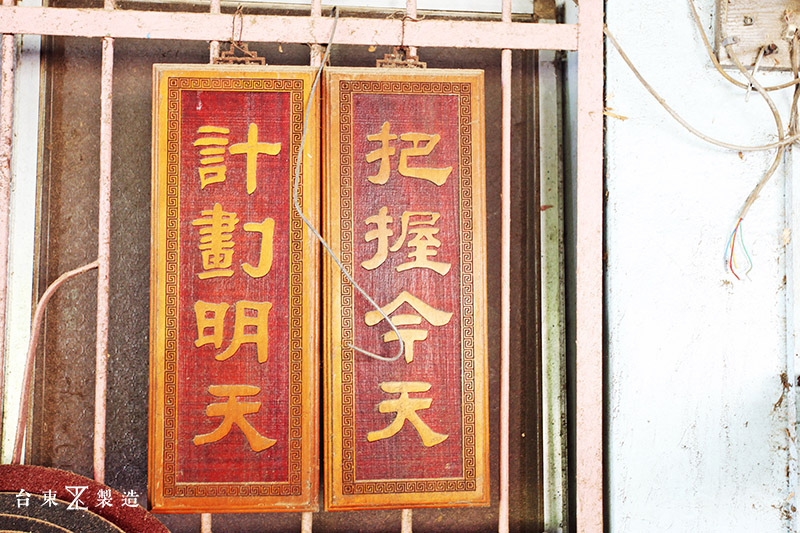 把握今天
計劃明天
台東製造